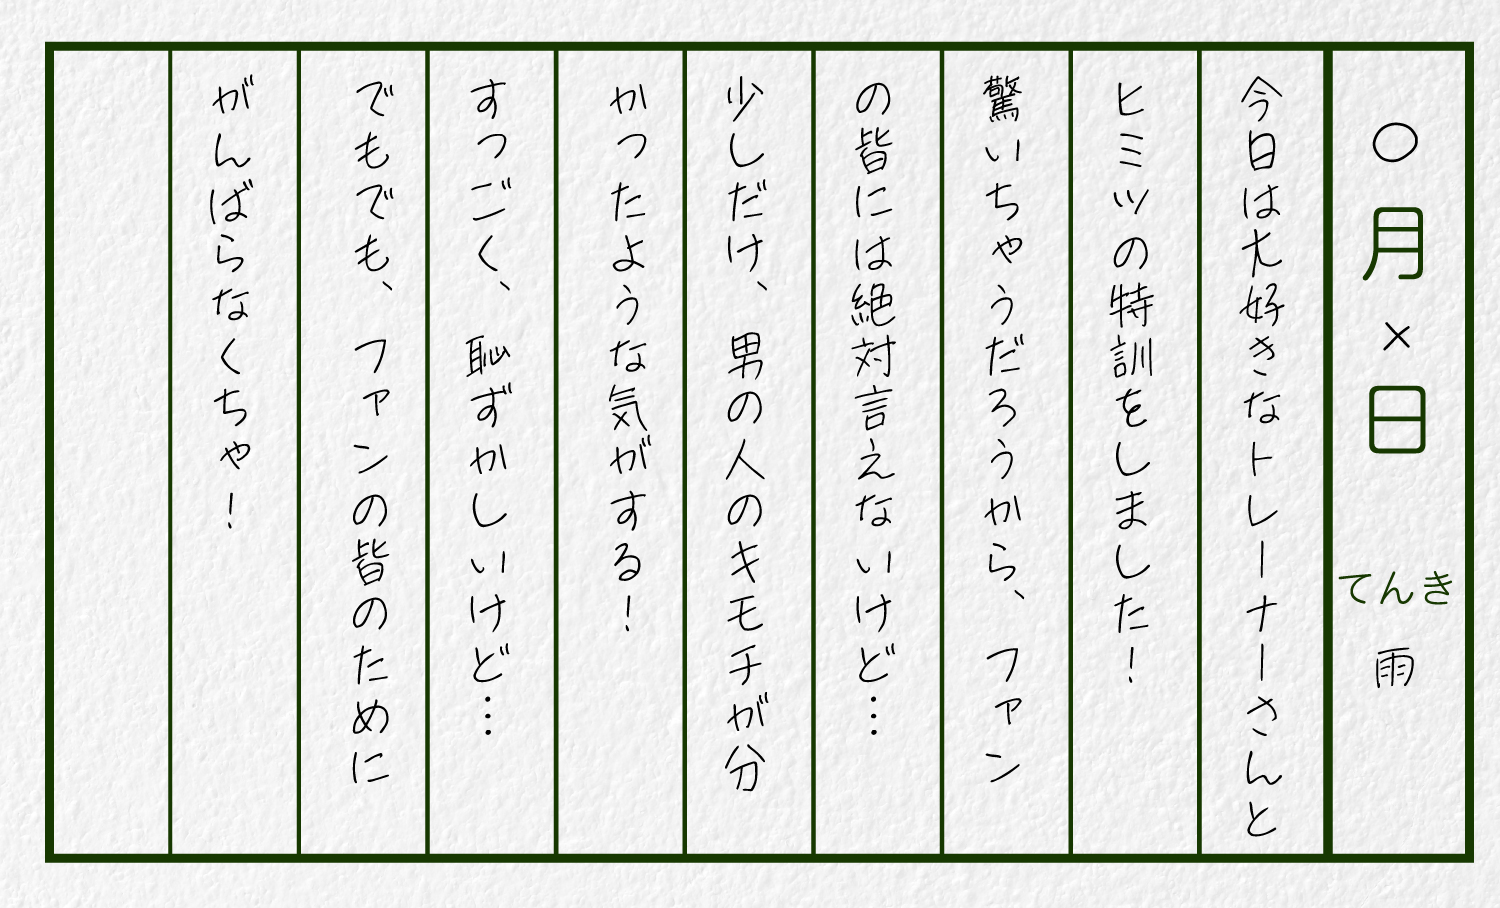 〇月×日 てんき 雨
今日は大好きなトレーナーさんと
ヒミツの特訓をしました!
驚いちゃうだろうから、ファン
の皆には絶対言えないけど…
少しだけ、男の人のキモチが分
かったような気がする!
すっごく、恥ずかしいけど…
でもでも、ファンの皆のために
がんばらなくちゃ!